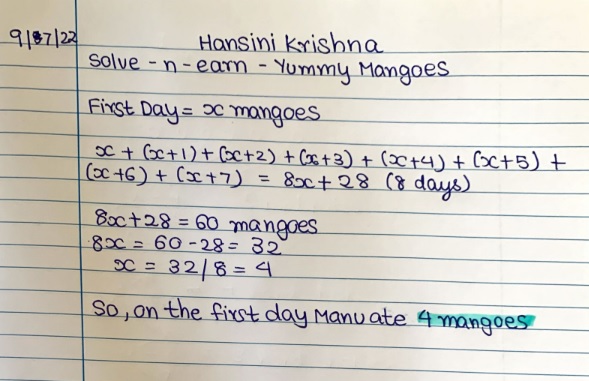 9/87/22
Hansini Krishna
Solve - n - earn - Yummy Mangoes
First Day = x mangoes
x + (x+1) + (x+2) + (x+3) + (x+4) + (x+5) +
(x+6) + (x+7) = 8x + 28 (8 days)
8x+28 = 60 mangoes
8x = 60 - 28 = 32
x = 32/8 = 4
So, on the first day Manu ate 4 mangoes